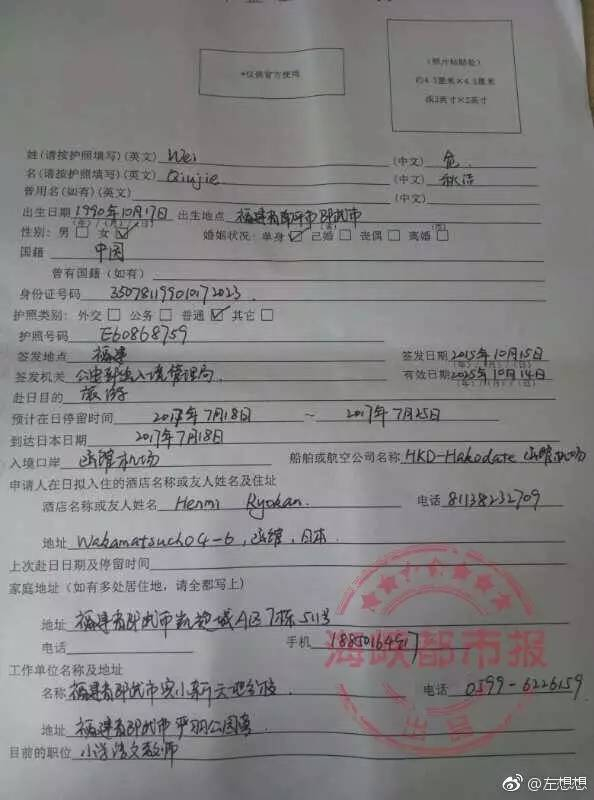 *仅供官方使用
(照片粘贴处)
约4.5厘米×4.5厘米
或2英寸×2英寸
姓(请按护照填写)(英文) Wei (中文) 危
名(请按护照填写)(英文) Qiujie (中文) 秋洁
曾用名(如有)(英文) (中文)
出生日期 1990年10月17日 出生地点 福建省南平市邵武市
(年)/(月)/(日)
性别: 男□ 女☑ 婚姻状况: 单身☑ 已婚□ 丧偶□ 离婚□
国籍 中国
曾有国籍(如有)
身份证号码 350781199010172023
护照类别: 外交□ 公务□ 普通☑ 其它□
护照号码 E60868759
签发地点 福建 签发日期 2015年10月15日
(年)/(月)/(日)
签发机关 公安部出入境管理局 有效日期 2025年10月14日
(年)/(月)/(日)
赴日目的 旅游
预计在日停留时间 2017年7月18日 ~ 2017年7月25日
到达日本日期 2017年7月18日
入境口岸 函馆机场 船舶或航空公司名称 HKD-Hakodate 函馆机场
申请人在日拟入住的酒店名称或友人姓名及住址
酒店名称或友人姓名 Henmi Ryokan 电话 81138232709
地址 Wakamatsucho 4-6, 函馆, 日本
上次赴日日期及停留时间
家庭地址(如有多处居住地,请全部写上)
地址 福建省邵武市凯旋城A区7栋511号
电话 手机 1885016
海峡都市报
工作单位名称及地址
名称 福建省邵武市实小新天地分校 电话 0599-6226159
出品
地址 福建省邵武市严羽公园旁
目前的职位 小学语文教师
@左想想